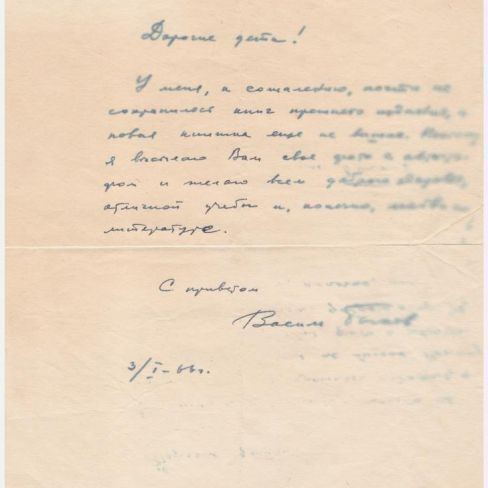 Дорогие дети!
У меня, к сожалению, почти не
сохранилось книг прошлого издания, а
новая книжка еще не вышла. Поэтому
я высылаю Вам свое фото с автогра-
фом и желаю всем доброго здоровья,
отличной учебы и, конечно, любви к
литературе.
С приветом
Васил Быков
3/I-66г.